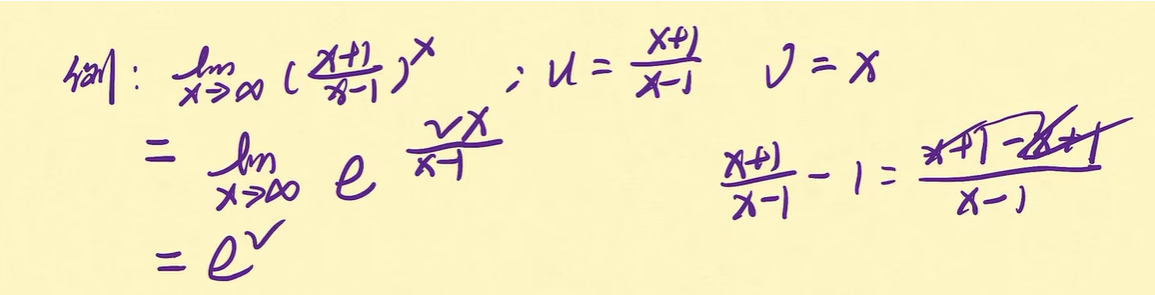 例: lim x→∞ (x+1/x-1)^x ; u = x+1/x-1 v = x
= lim x→∞ e^(2x/x-1) x+1/x-1 - 1 = x+1-x+1/x-1
= e^2